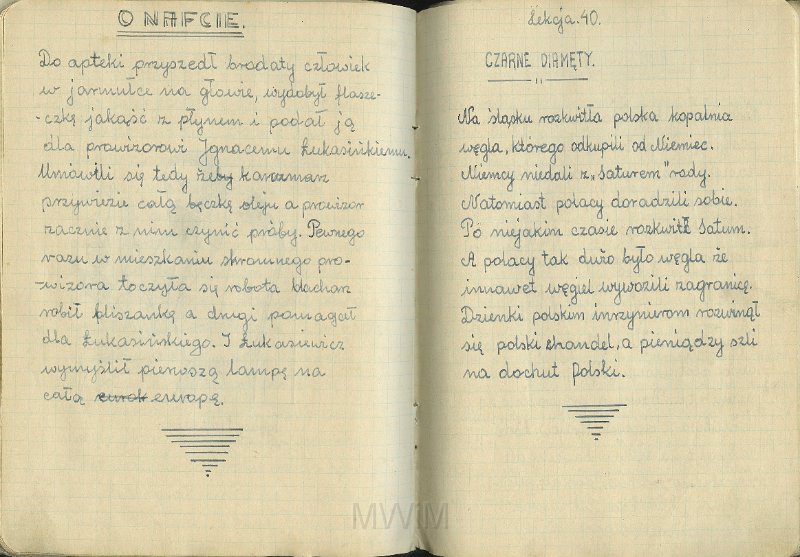 O NAFCIE.
Do apteki przyszedł brodaty człowiek
w jarmułce na głowie, wydobył flasze-
-czkę jakąść z płynem i podał ją
dla prowizorowi Ignacemu Łukasińkiemu.
Umówili się tedy żeby karczmarz
przywiezie całą beczkę oleju a prowizor
zacznie z nim czynić próby. Pewnego
razu w mieszkaniu skromnego pro-
-wizora toczyła się robota blacharz
robił bliszankę a drugi pomagał
dla Łukasińskiego. I Łukasiewicz
wymyślił pierwszą lampę na
całą europę.
Lekcja. 40.
CZARNE DIAMĘTY.
Na śląsku rozkwitła polska kopalnia
węgla, którego odkupili od Niemiec.
Niemcy niedali z „Saturem" rady.
Natomiast polacy doradzili sobie.
Po niejakim czasie rozkwitł Saturn.
A polacy tak dużo było węgla że
innawet węgiel wywozili zagranicę.
Dzienki polskim inrzynierom rozwinął
się polski handel, a pieniądzy szli
na dochut Polski.
MWiM